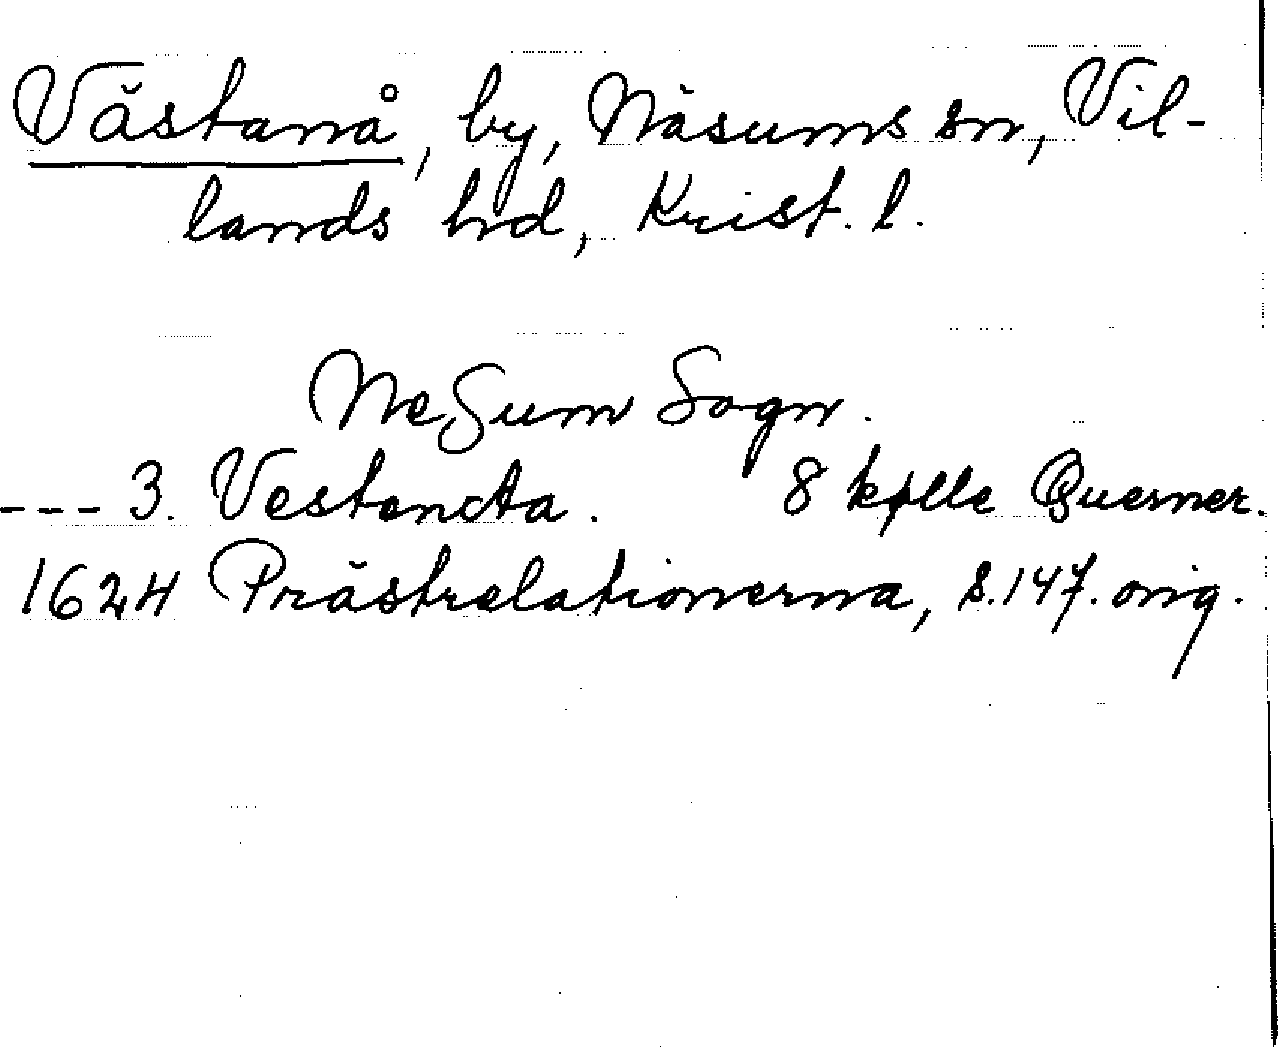 Västanå, by, Näsums sn, Vil-
lands hd, Krist. l.
NeSum Sogn.
--- 3. Vestenaa. 8 kølle Querner.
1624 Prästrelationerna, s. 147. orig.